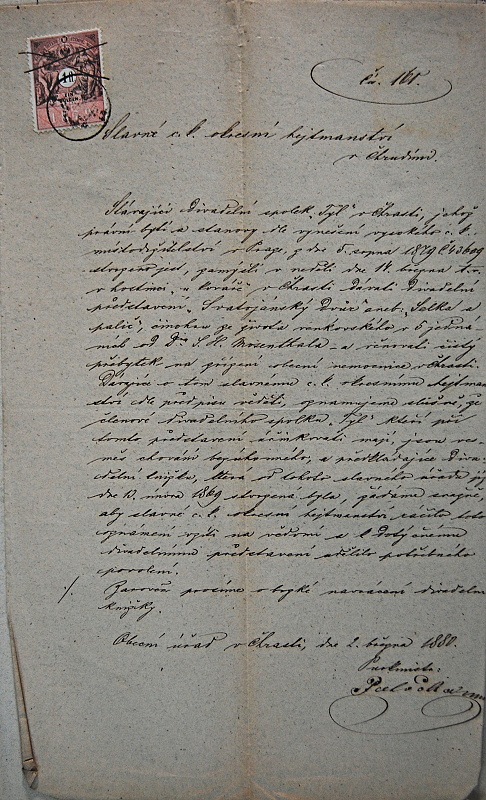 Čís. 160.
Slavné c. k. okresní hejtmanství
v Chrudimi.
Stávající divadelní spolek „Tyl“ v Chrasti, jehož
právní bytí a stanovy dle vynešení vysokého c. k.
místodržitelství v Praze, z dne 5. srpna 1879 Č 43609
stvrzeno jest, pamýšlí v neděli dne 14. března t. r.
v hostinci „u Kováře“ v Chrasti dávati divadelní
představení „Svatojánský Dvůr“ aneb: Selka a
palič, činohra ze života venkovského v 5 jedná-
ních od Dra S. H. Mosenthala – a věnovati čistý
přebytek na zřízení obecní nemocnice v Chrasti.
Davajíce o tom slavnému c. k. okresnímu hejtman-
ství dle předpisu věděti, oznamujeme slušně, že
členové divadelního spolku „Tyl“ kteří při
tomto představení účinkovati mají, jsou ves-
měs chování bezúhonného, a předkládajíce diva-
delní knížku, která od tohoto slavného úřadu již
dne 10. února 1869 stvrzena byla, žádáme snažně,
aby slavné c. k. okresní hejtmanství ráčilo toto
oznámení vzíti na vědomí a k dotyčnému
divadelnímu představení udělilo potřebného
povolení.
Zároveň prosíme o brzké navrácení divadelní
knížky.
Obecní úřad v Chrasti, dne 2. března 1880.
Purkmistr: